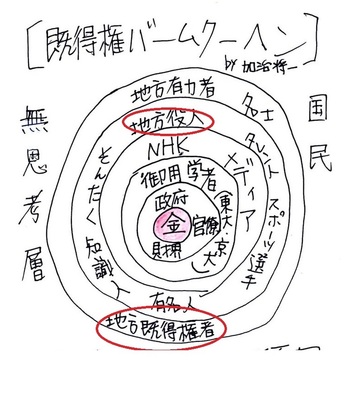 [既得権バームクーヘン]
by 加治将一
地方有力者
名士
地方役人
タレント
スポーツ選手
NHK
メディア
そんたく
知識人
御用学者
(東大・京大)
政府
金
官僚
財界
有名人
地方既得権者
国民
無思考層